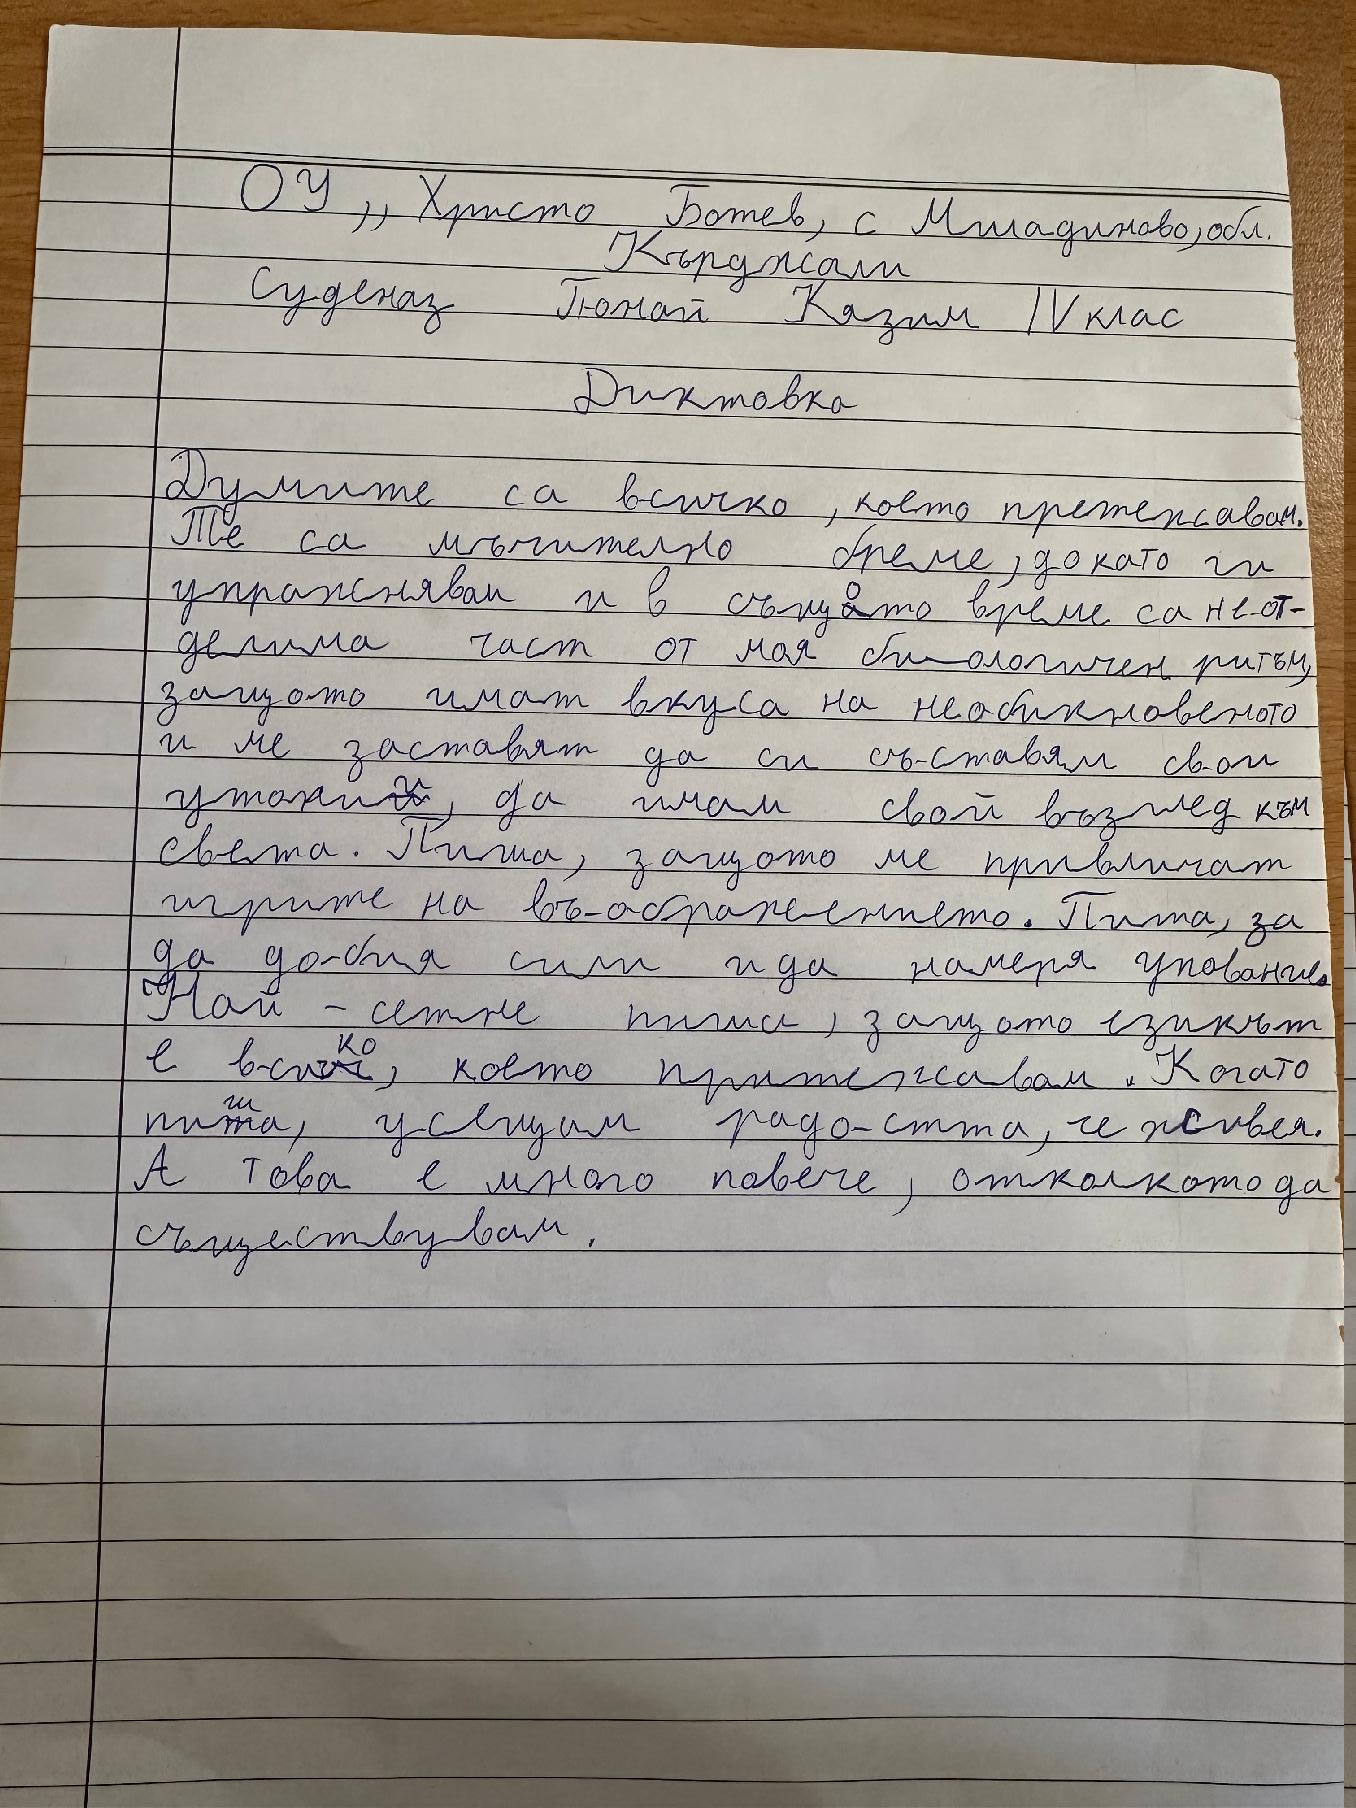 ОУ ,, Христо Ботев, с Младиново, обл.
Кърджали
Суденаз Гюнай Кязим IV клас
Диктовка
Думите са всичко, което претежавам.
Те са мъчително бреме, докато ги
упражнявам и в същото време са неот-
делима част от моя биологичен ритъм,
защото имат вкуса на необикновеното
и ме заставят да си съставям свои
утопии, да имам свой възглед към
света. Пиша, защото ме привличат
игрите на въображението. Пиша, за
да добия сили и да намеря упование.
Най - сетне пиша, защото езикът
е всичко, което притежавам. Когато
пиша, усещам радостта, че живея.
А това е много повече, отколкото да
съществувам.